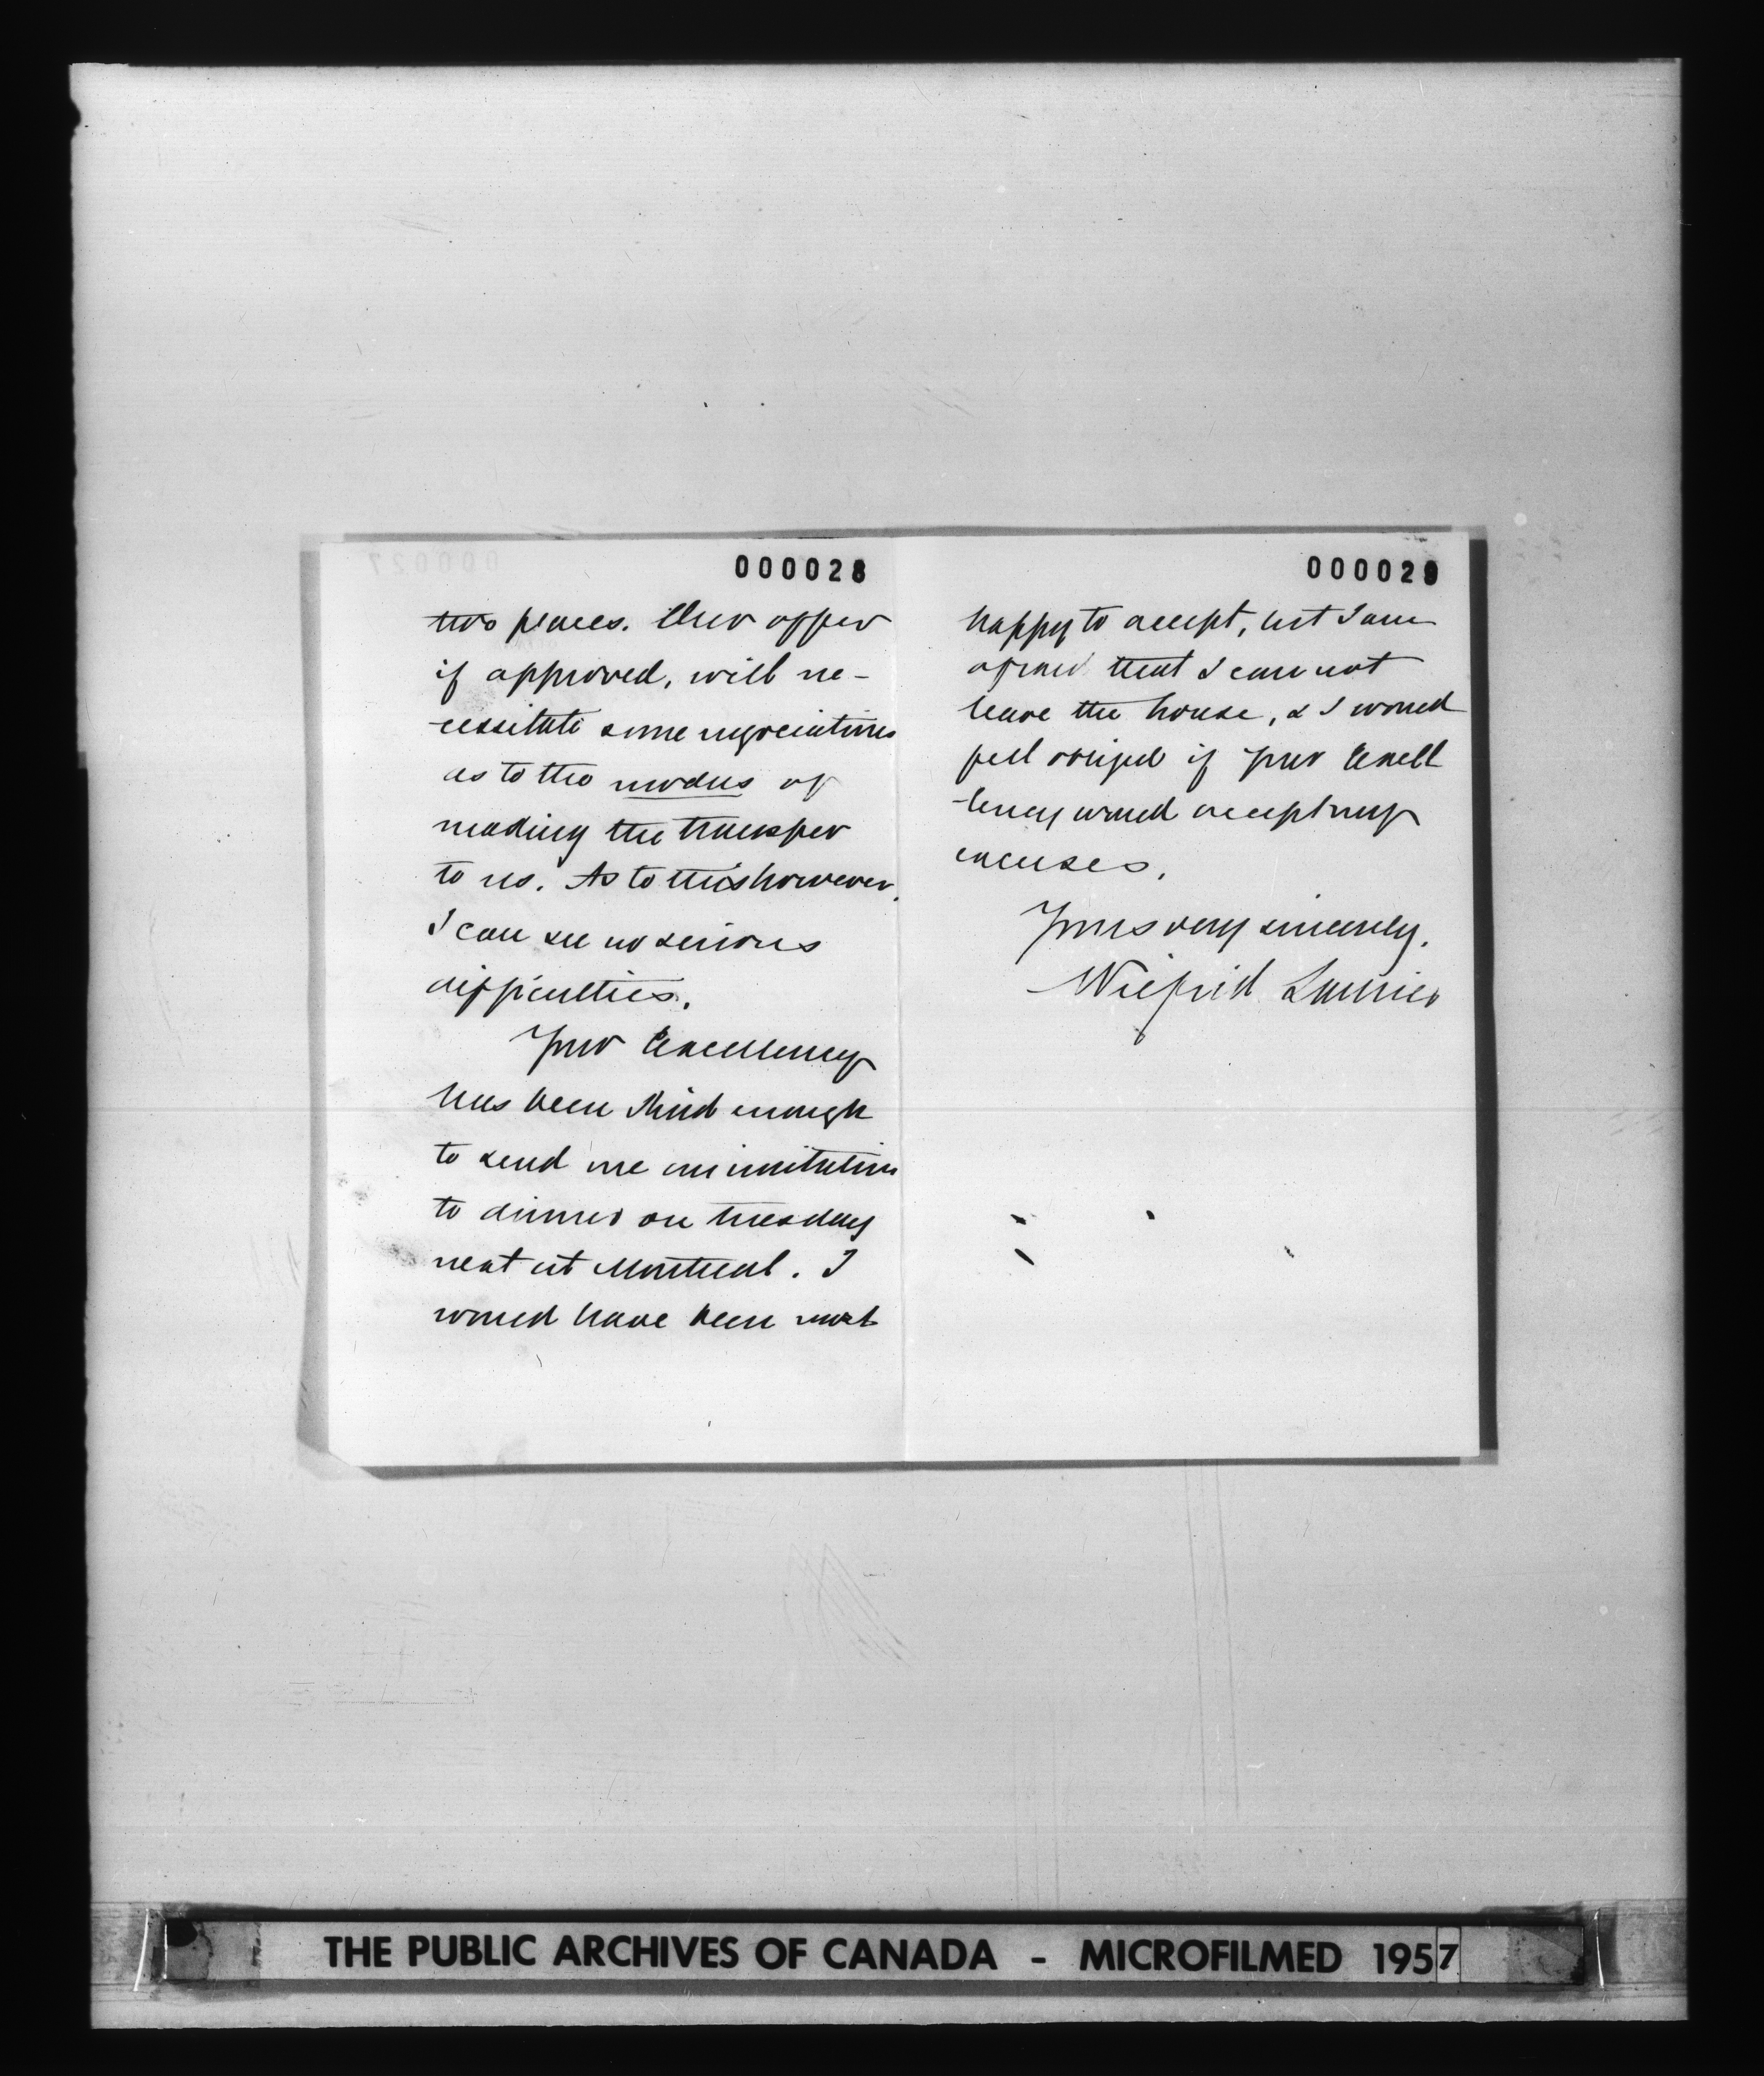 000028
two places. Our offer
if approved, will ne-
cessitate some negociations
as to the modus of
making the transfer
to us. As to this however,
I can see no serious
difficulties.
Your Excellency
has been kind enough
to send me an invitation
to dinner on tuesday
next at Montreal. I
would have been most
000029
happy to accept, but I am
afraid that I can not
leave the house, & I would
feel obliged if your Excell
-lency would accept my
excuses.
Yours very sincerely,
Wilfrid Laurier
000027
THE PUBLIC ARCHIVES OF CANADA - MICROFILMED 1957